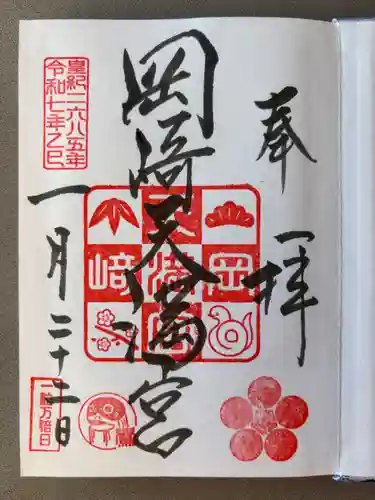 奉拝
岡崎天満宮
皇紀二六八五年
令和七年乙巳
一月二十二日
一粒万倍日
岡崎天満宮